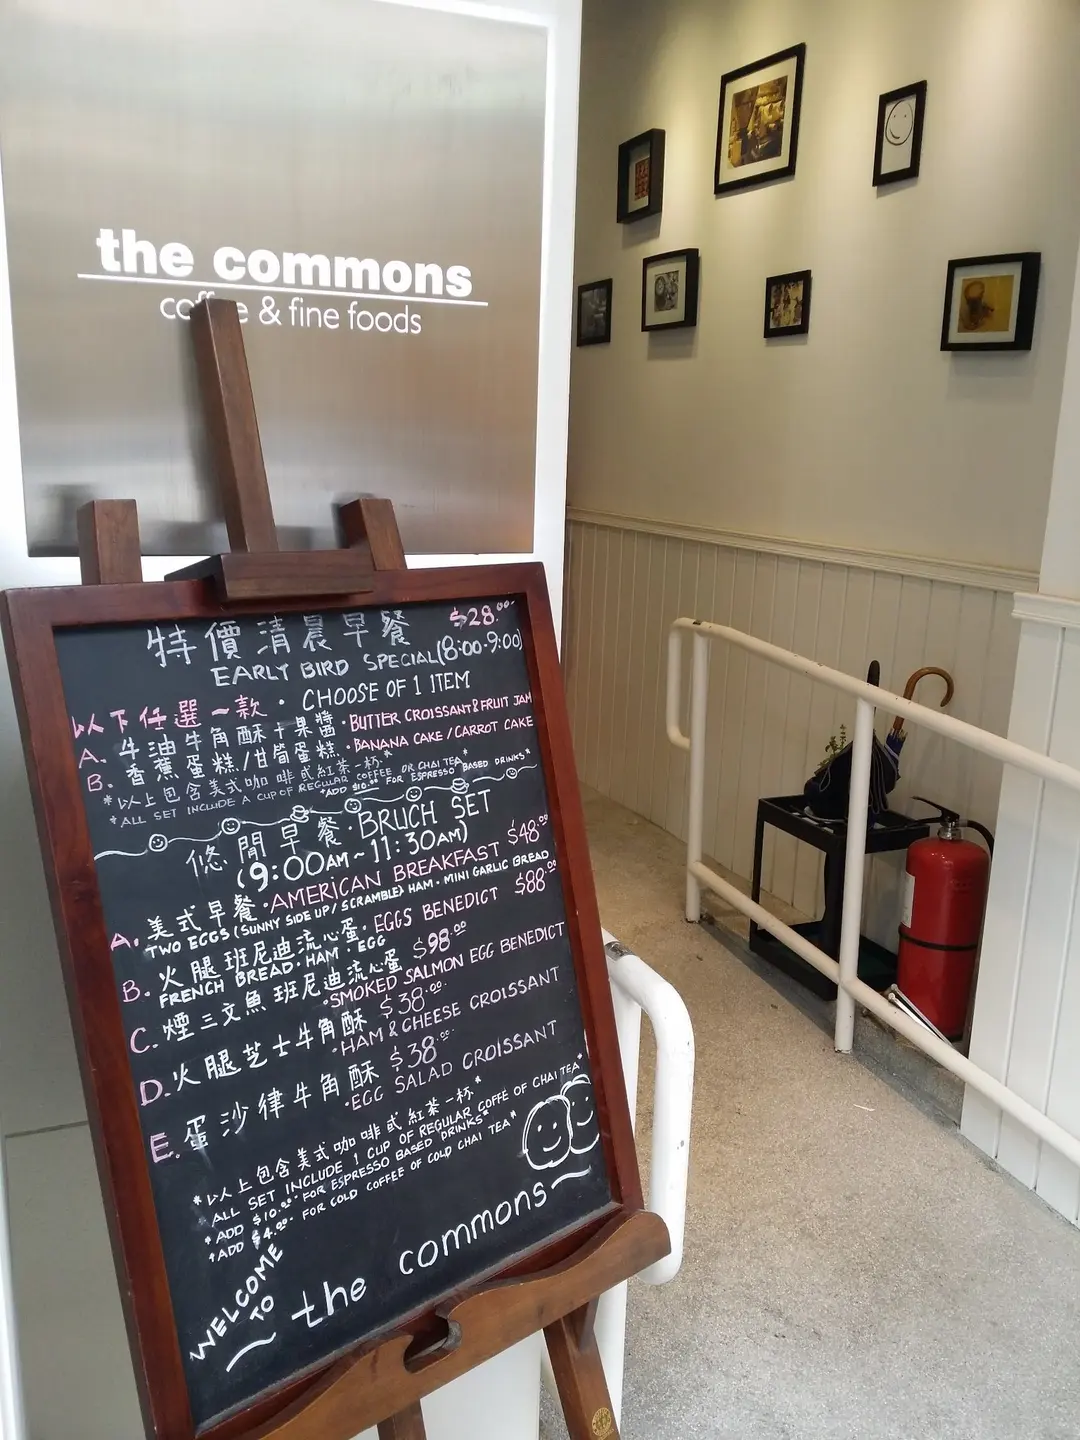 the commons
coffee & fine foods
特價清晨早餐 $28.00
EARLY BIRD SPECIAL (8:00-9:00)
以下任選一款 · CHOOSE OF 1 ITEM
A. 牛油牛角酥+果醬 · BUTTER CROISSANT & FRUIT JAM
B. 香蕉蛋糕/甘筍蛋糕 · BANANA CAKE/CARROT CAKE
*以上包含美式咖啡或紅茶一杯*
*ALL SET INCLUDE A CUP OF REGULAR COFFEE OR CHAI TEA*
*ADD $10.00 FOR ESPRESSO BASED DRINKS*
悠閒早餐 · BRUCH SET
(9:00AM~11:30AM)
A. 美式早餐 · AMERICAN BREAKFAST $48.00
TWO EGGS (SUNNY SIDE UP / SCRAMBLE) HAM · MINI GARLIC BREAD
B. 火腿班尼迪流心蛋 · EGGS BENEDICT $88.00
FRENCH BREAD · HAM · EGG
C. 煙三文魚班尼迪流心蛋 $98.00
· SMOKED SALMON EGG BENEDICT
D. 火腿芝士牛角酥 $38.00
· HAM & CHEESE CROISSANT
E. 蛋沙律牛角酥 $38.00
· EGG SALAD CROISSANT
*以上包含美式咖啡或紅茶一杯*
*ALL SET INCLUDE 1 CUP OF REGULAR COFFE OF CHAI TEA*
*ADD $10.00 FOR ESPRESSO BASED DRINKS*
*ADD $4.00 FOR COLD COFFEE OF COLD CHAI TEA*
WELCOME
TO
the commons